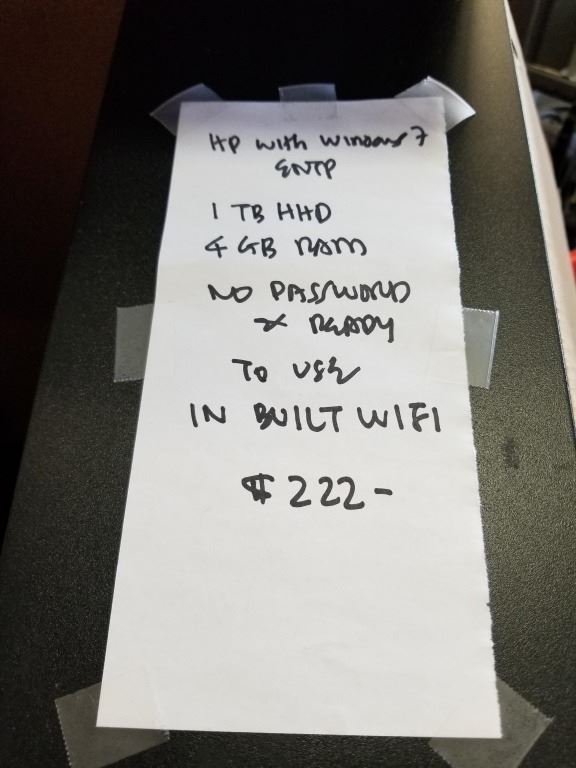 HP with Windows 7
ENTP
1 TB HHD
4 GB RAM
NO PASSWORD
& READY
TO USE
IN BUILT WIFI
$222-